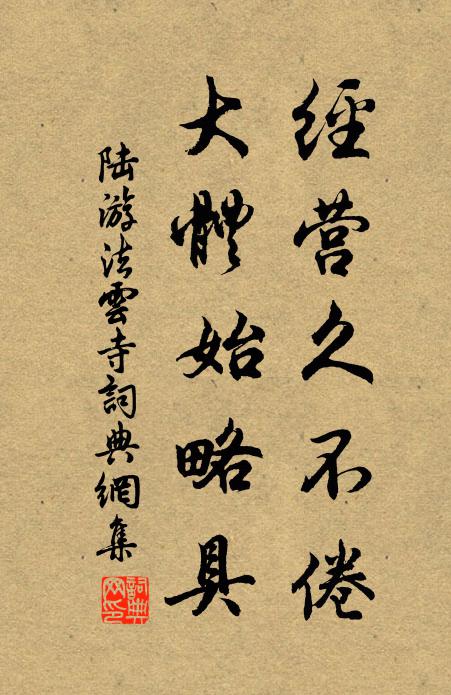 經营久不倦
大體始略具
陸游法雲寺詞典網集
詞典網印